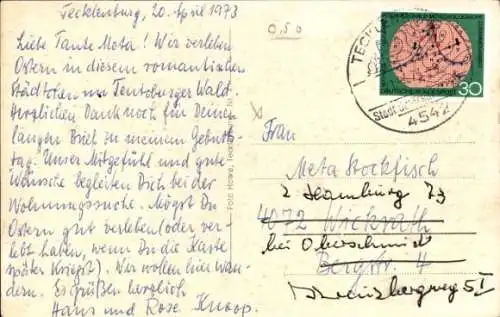 Tecklenburg, 20. April 1973
Liebe Tante Meta! Wir verleben
Ostern in diesem romantischen
Städtchen im Teutoburger Wald.
Herzlichen Dank noch für Deinen
langen Brief zu meinem Geburts-
tag. Unser Mitgefühl und gute
Wünsche begleiten Dich bei der
Wohnungssuche. Mögst Du
Ostern gut verleben (oder ver-
lebt haben, wenn Du die Karte
später kriegst). Wir wollen hier wan-
dern. Es grüßen herzlich
Hans und Rose Knoop.
0,50
DEUTSCHE BUNDESPOST
30
TECK
Stadt
4542
Foto Howe, Teck
Frau
Meta Stockfisch
2 Hamburg 73
4072 Wickrath
bei Oberschmidt
Bergstr. 4
Kreuzbergweg 5 I